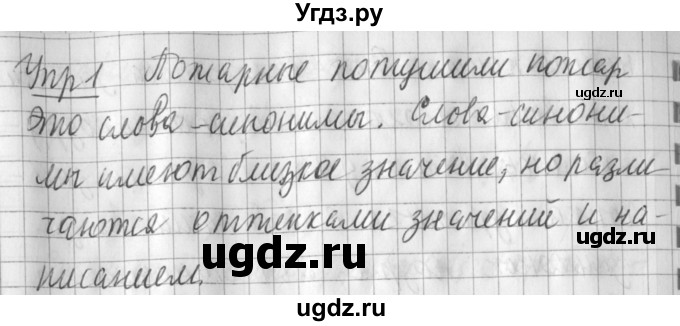 Угдз.ру
Упр 1 Пожарные потушили пожар
ugdz.ru
Это слова-синонимы. Слова-синони-
мы имеют близкое значение, но разли
чаются оттенками значений и на-
ugdz.ru
ugdz.ru
писанием.
ugdz.ru